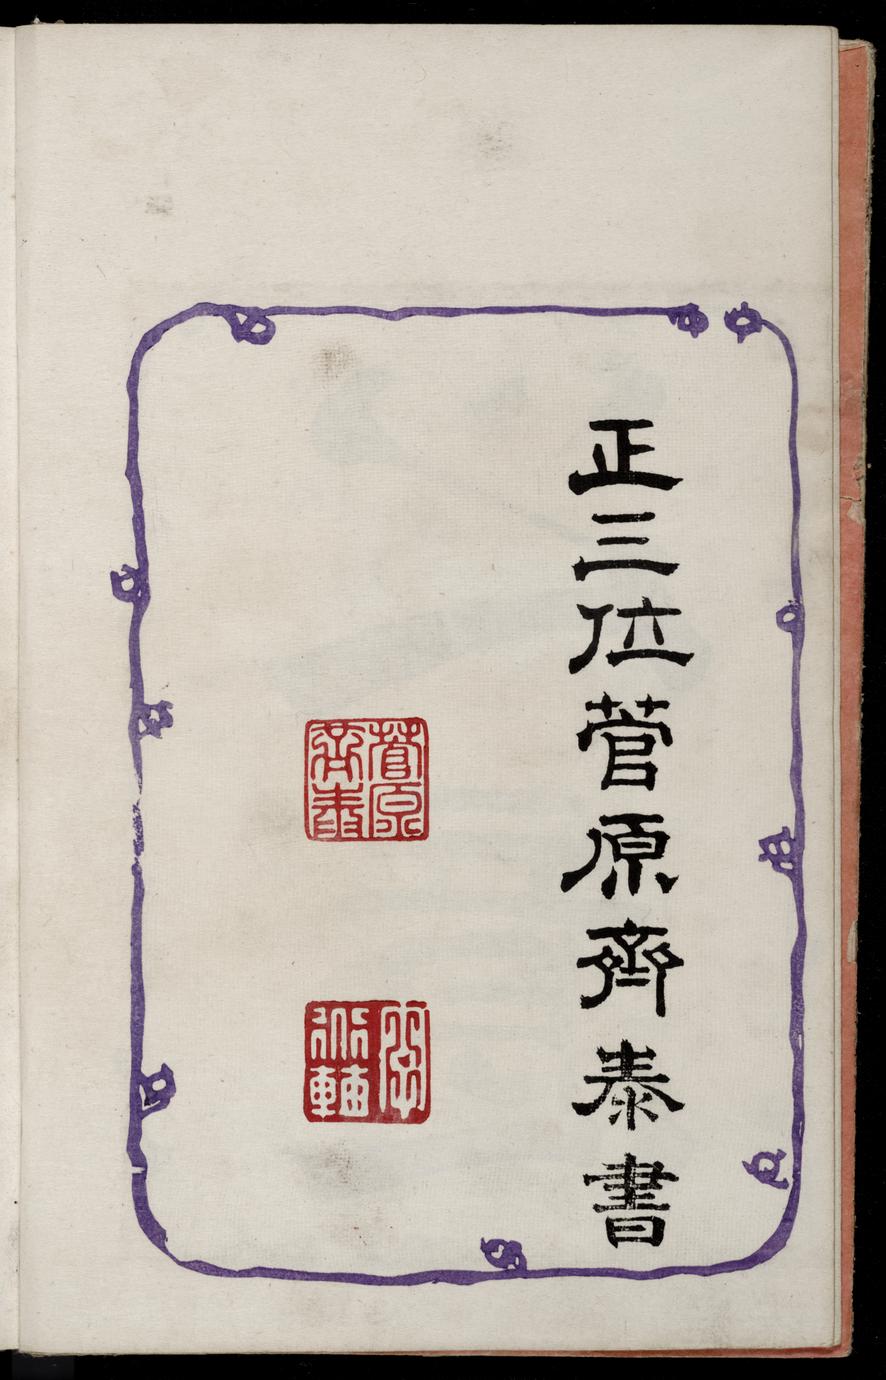 正三位菅原齊泰書
菅原
齊泰